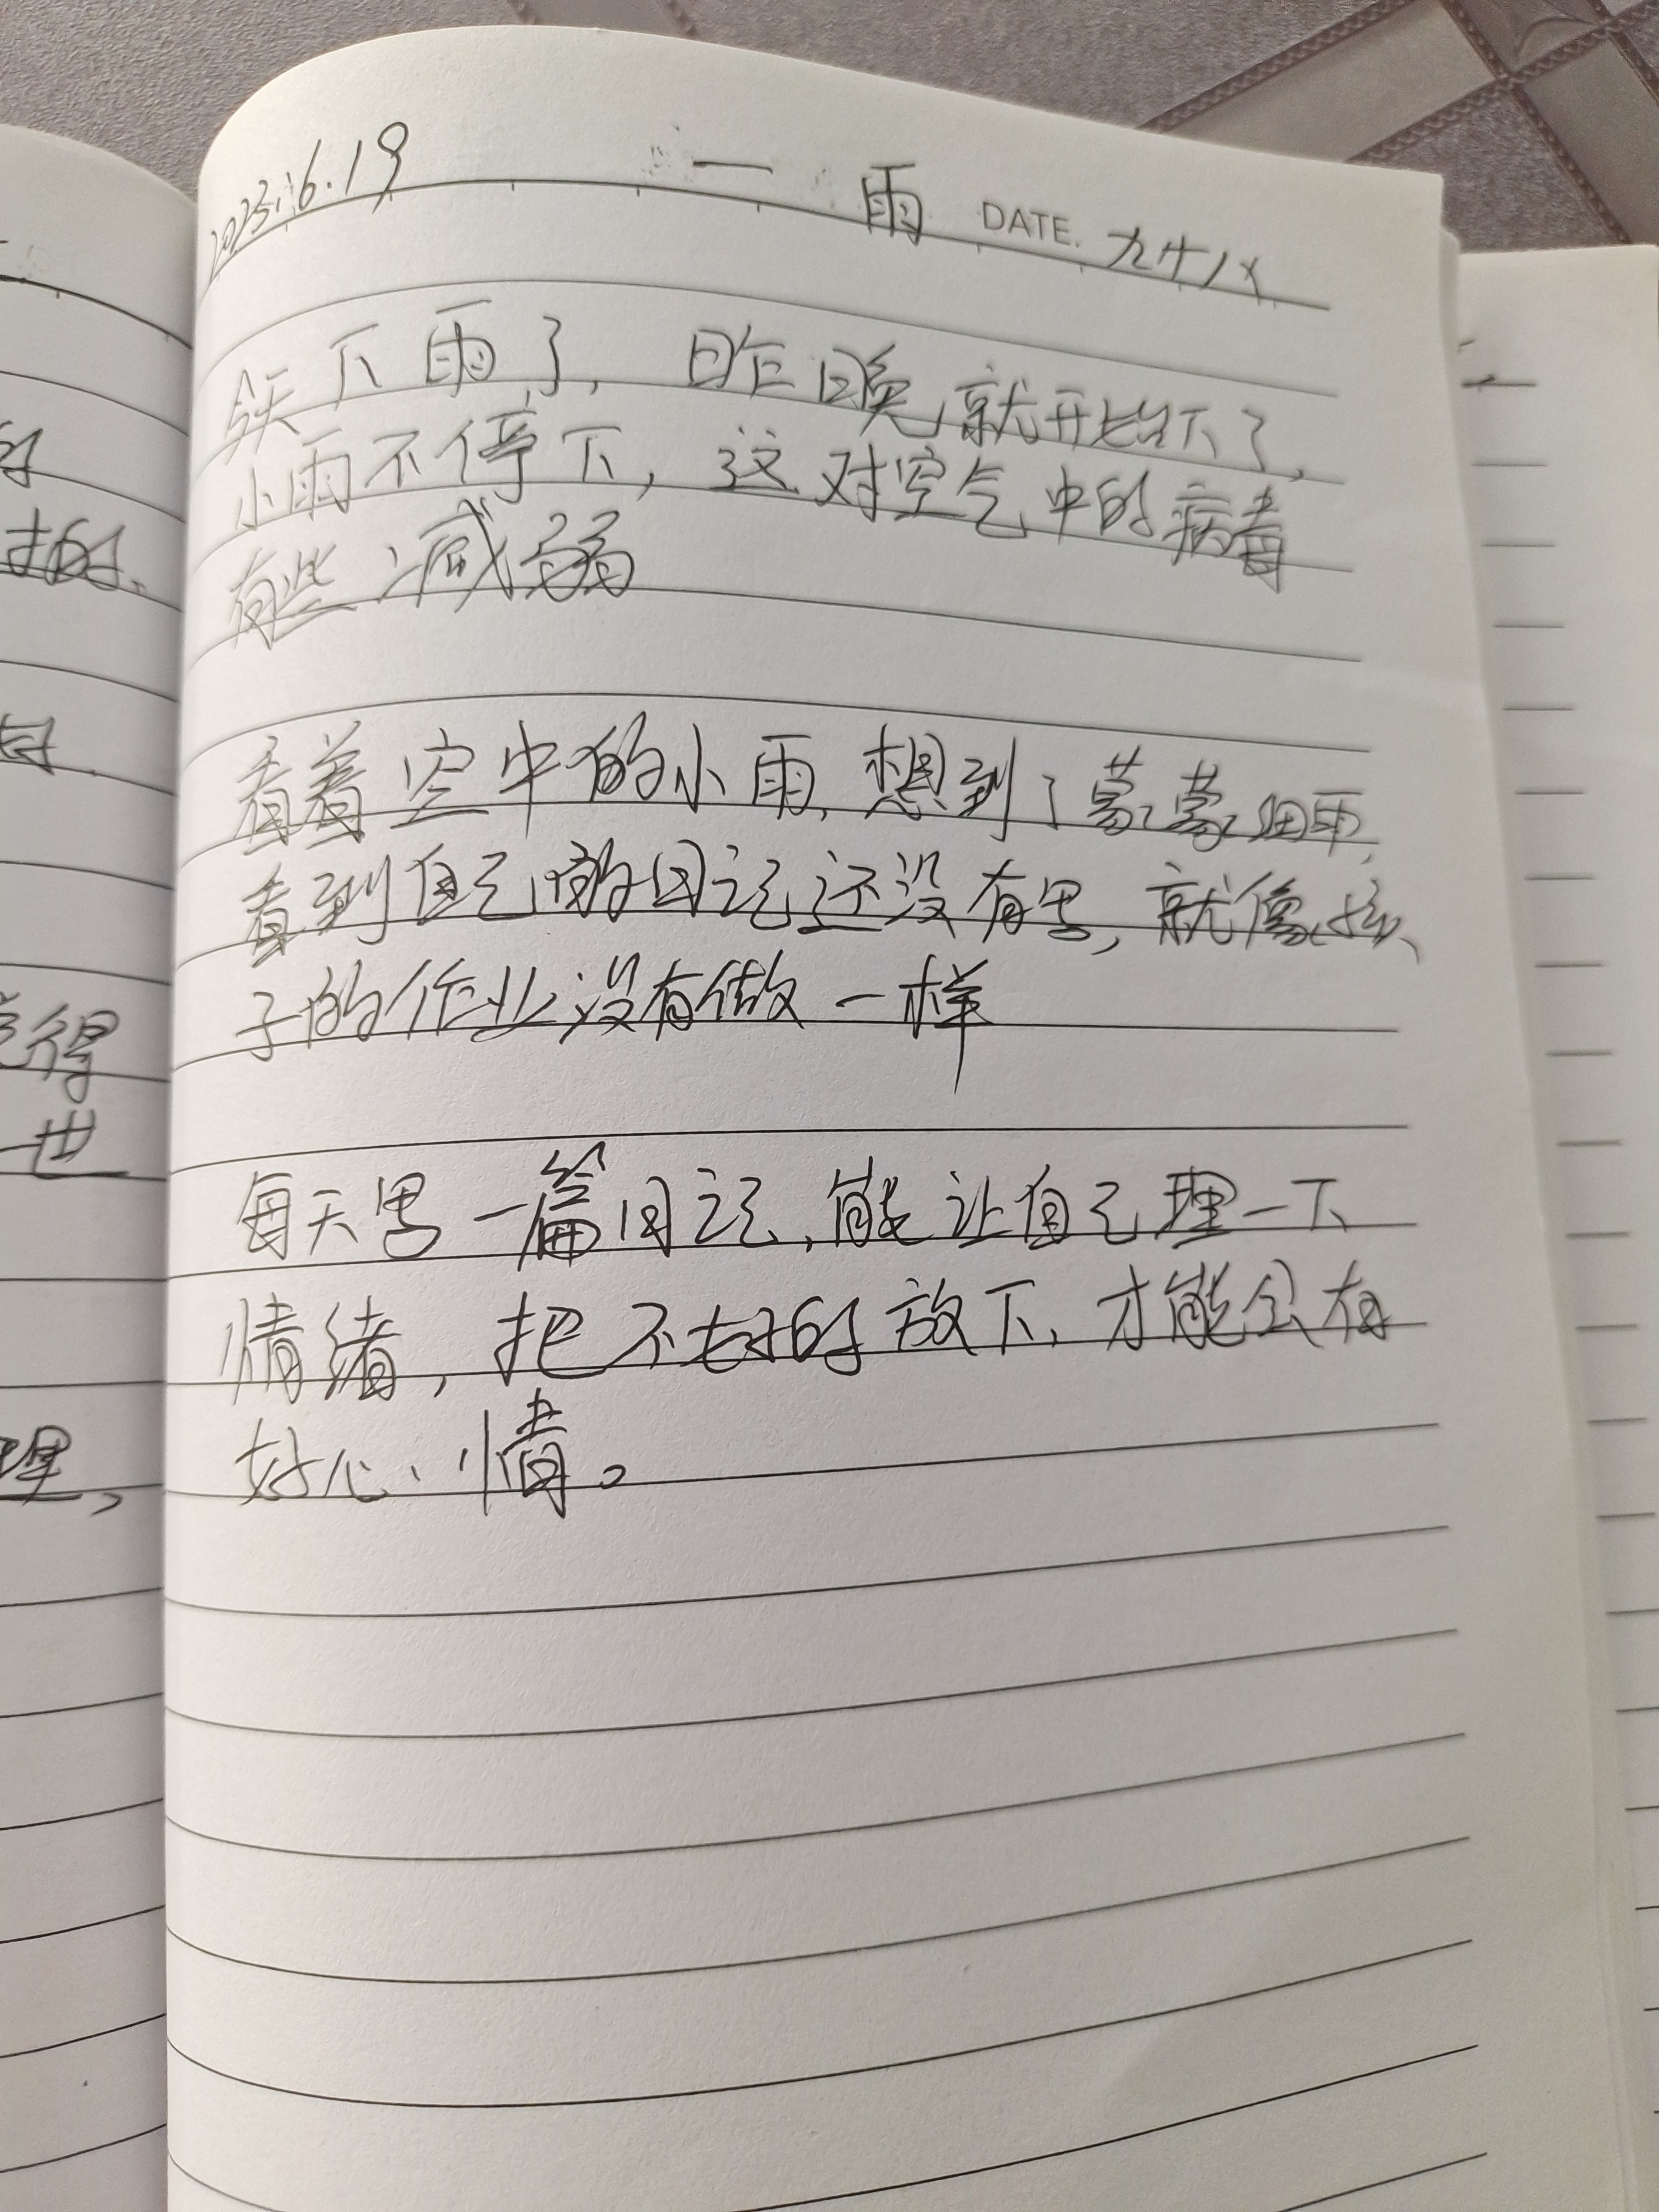 2023.6.19 一 雨 DATE. 九十八
今天下雨了，昨晚就开始下了，
小雨不停下，这对空气中的病毒
有些减弱
看着空中的小雨，想到了蒙蒙细雨，
看到自己的日记还没有写，就像孩
子的作业没有做一样
每天写一篇日记，能让自己理一下
情绪，把不好的放下，才能会有
好心情。
得
也
理，